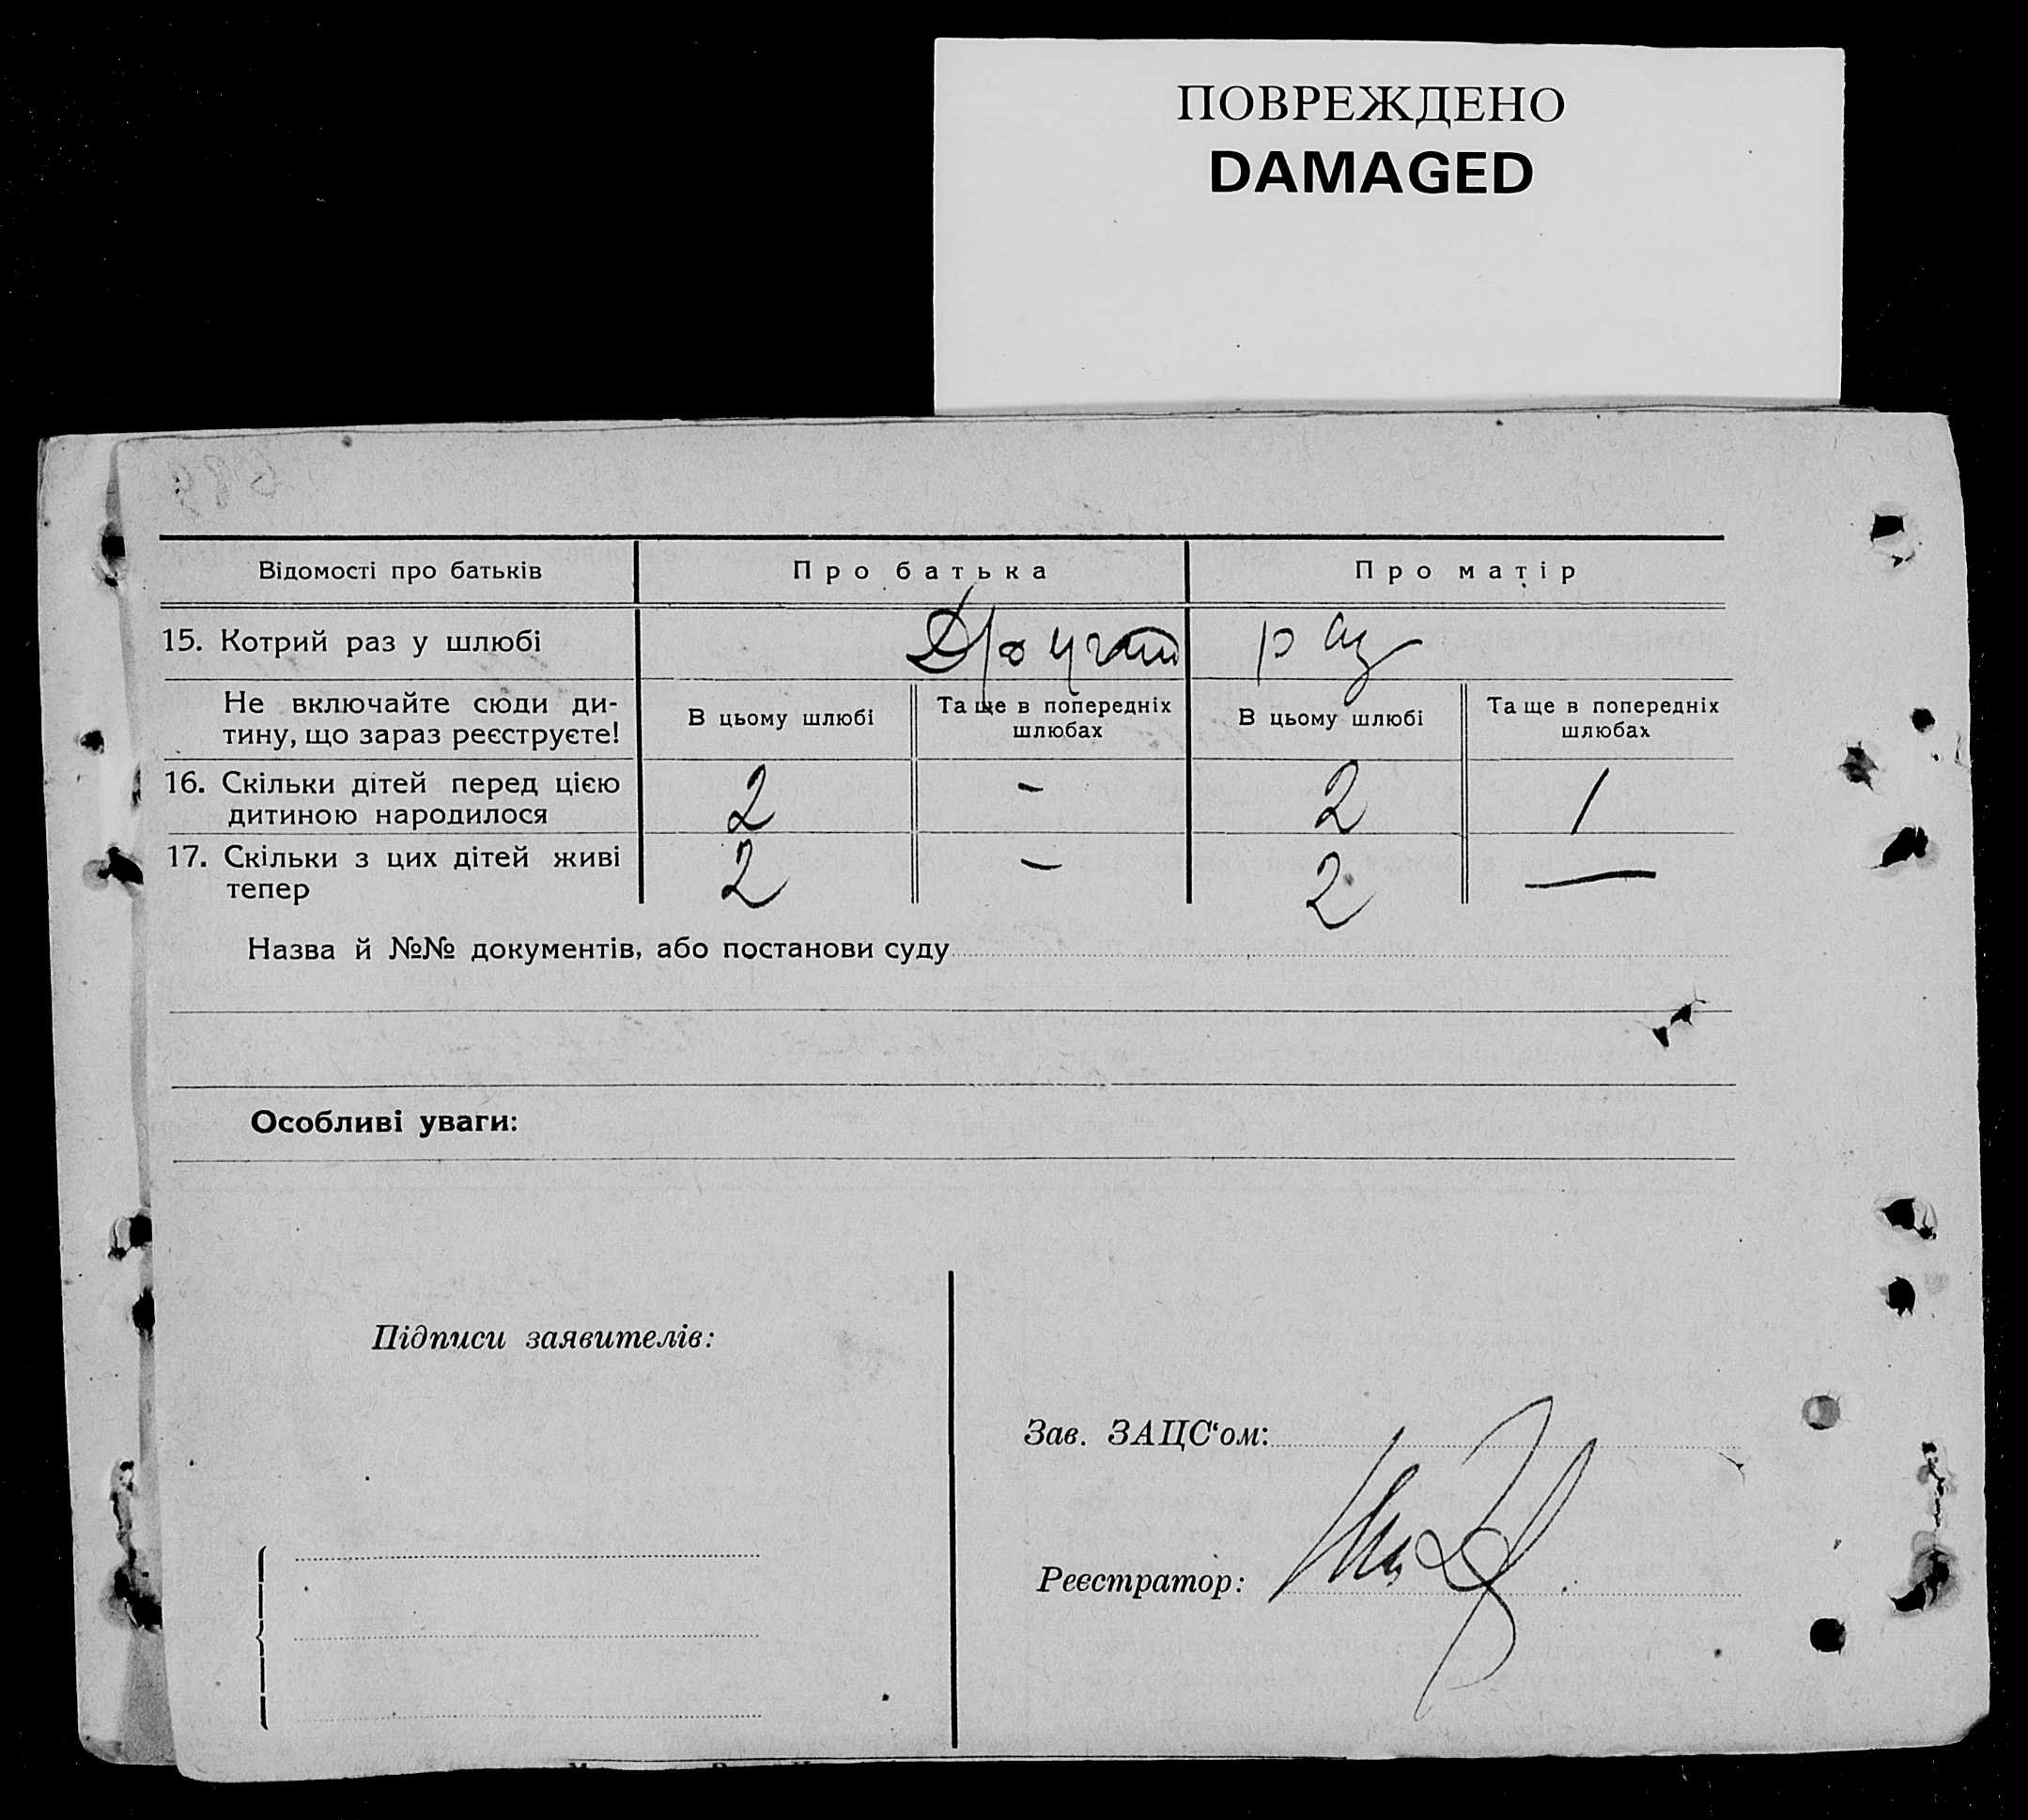 ПОВРЕЖДЕНО
DAMAGED
Відомості про батьків Про батька Про матір
15. Котрий раз у шлюбі Другий раз
Не включайте сюди ди-
тину, що зараз реєструєте!
В цьому шлюбі
Та ще в попередніх
шлюбах
В цьому шлюбі
Та ще в попередніх
шлюбах
16. Скільки дітей перед цією
дитиною народилося
2 - 2 1
17. Скільки з цих дітей живі
тепер
2 — 2 —
Назва й №№ документів, або постанови суду
Особливі уваги:
Підписи заявителів:
Зав. ЗАЦС‘ом:
Реєстратор: